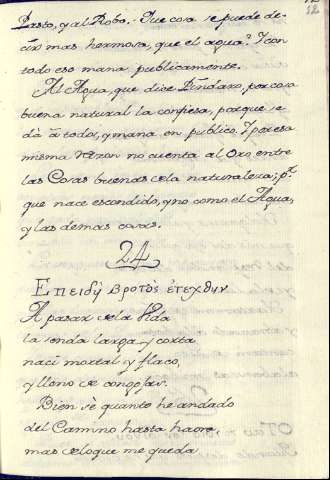 12
12
Pasto, y al Robo. Que cosa se puede de-
cir mas hermosa, que el agua? I con
todo eso mana publicamente.
Al Agua, que dice Pindaro, por cosa
buena natural la confiesa, porque se
dà à todos, y mana en publico. I por esa
misma razon no cuenta al Oro entre
las Cosas buenas de la naturaleza; pr.
que nace escondido, y no como el Agua,
y las demas cosas.
24
Επειδὴ βροτὸς ἐτεχθην
A pasar de la Vida
la senda larga, y corta
naci mortal, y flaco,
y lleno de congojas.
Bien sè quanto he andado
del Camino hasta haora
mas de lo que me queda